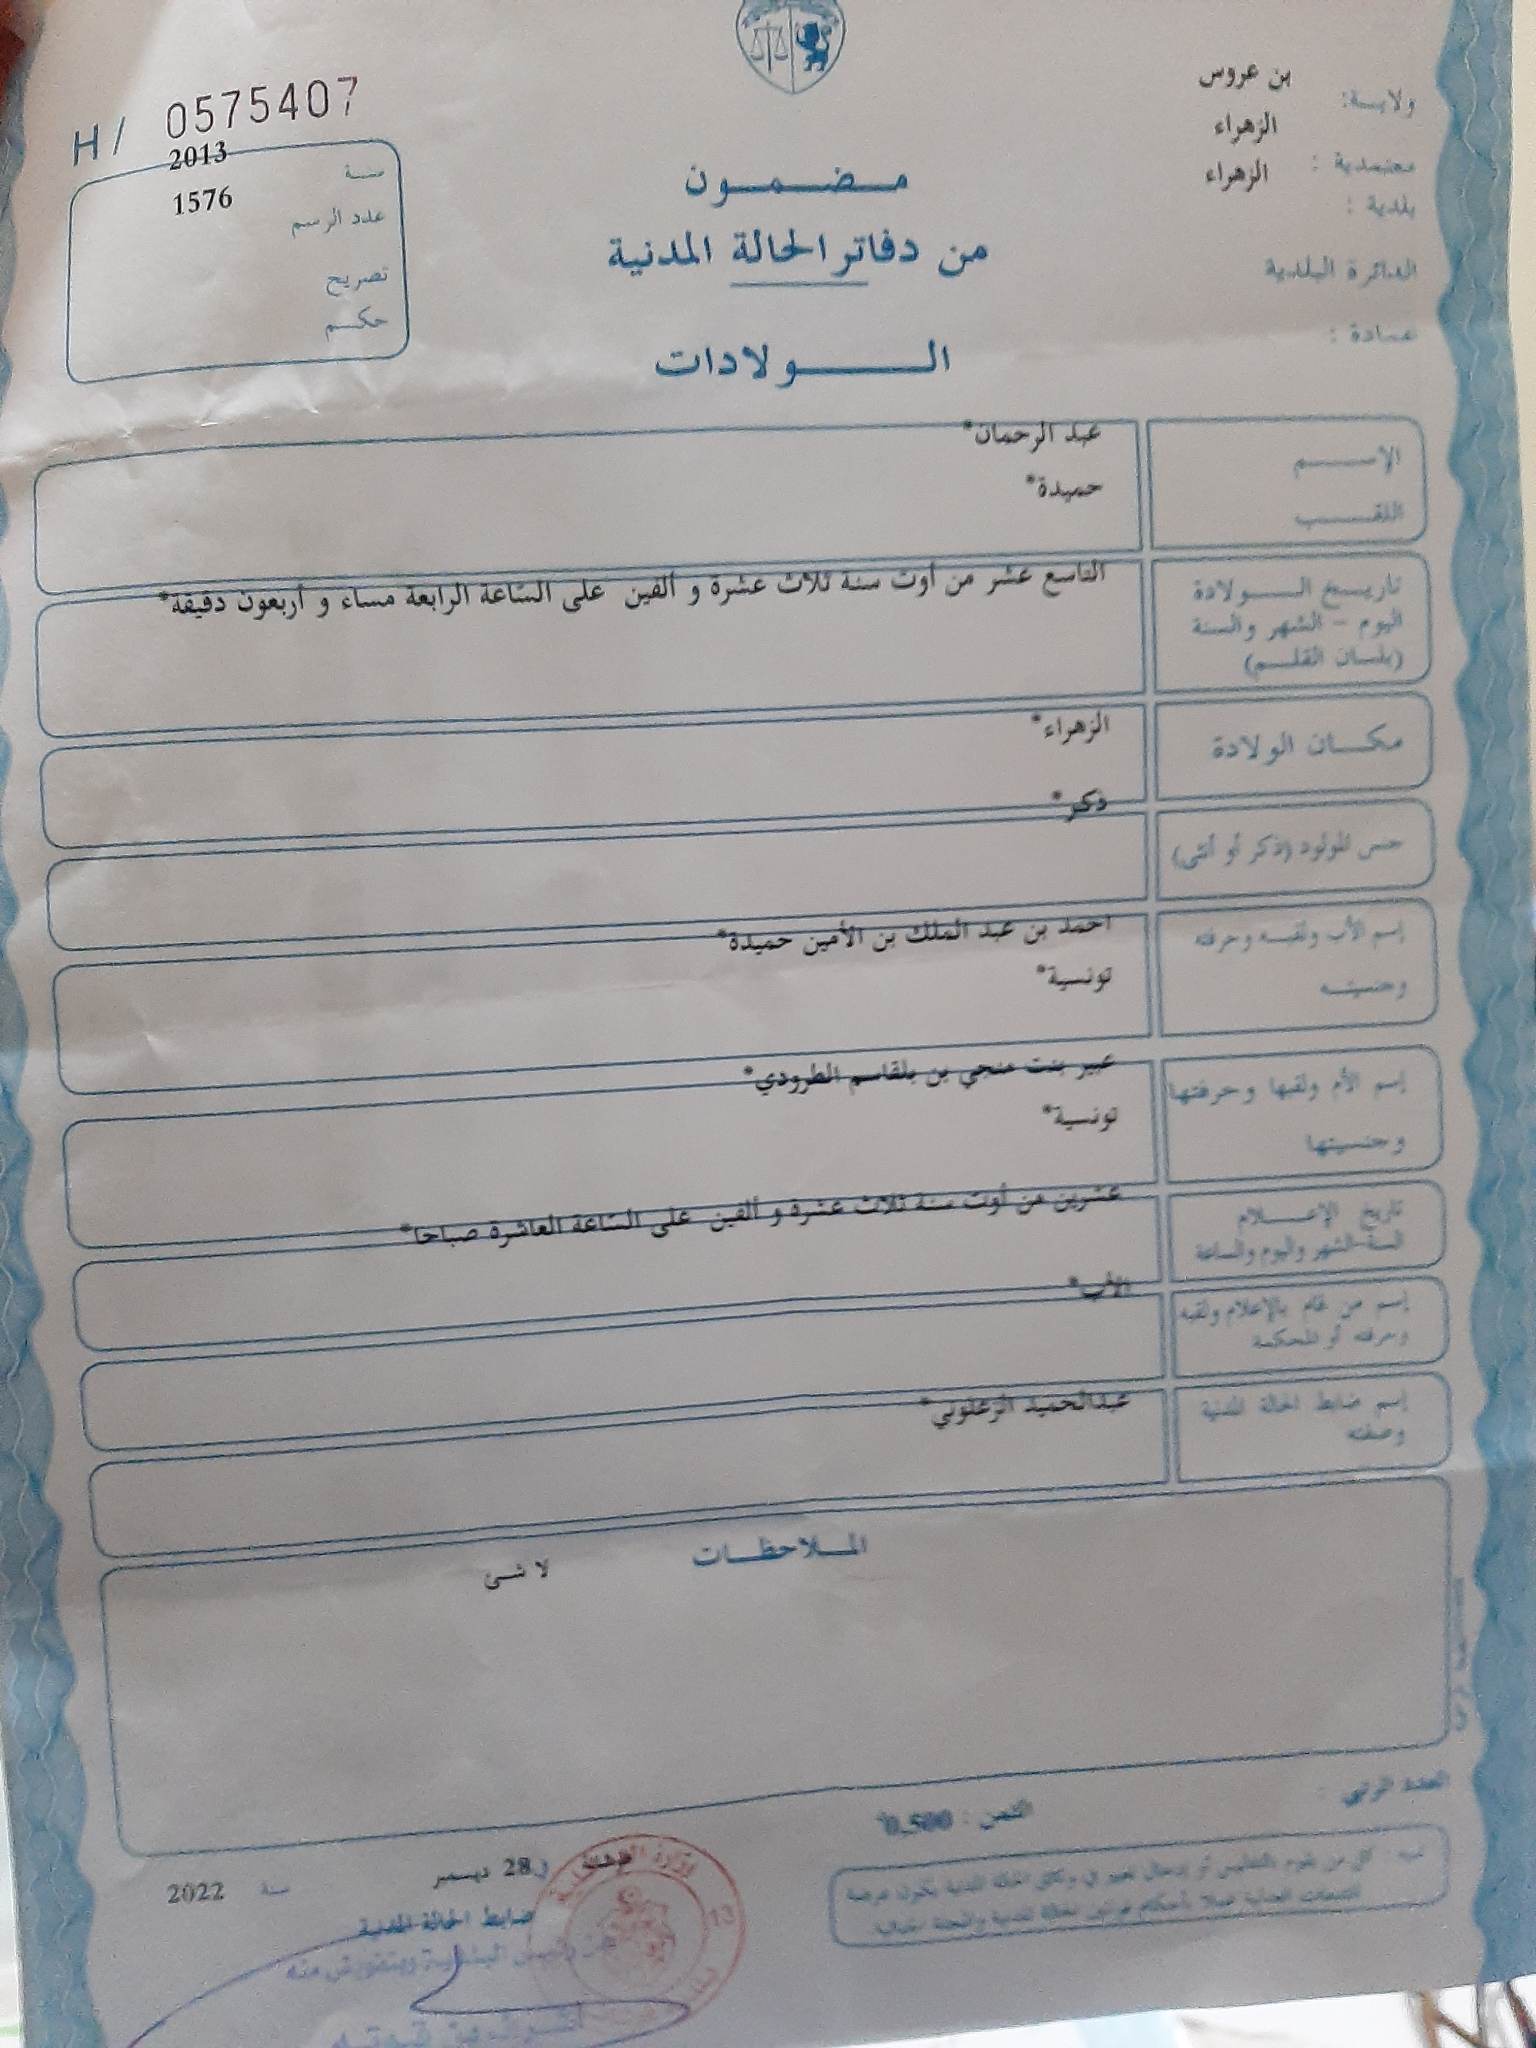 ولاية: بن عروس
معتمدية : الزهراء
بلدية : الزهراء
الدائرة البلدية
عمادة :
H/ 0575407
سنة 2013
عدد الرسم 1576
تصريح
حكم
مضمون
من دفاتر الحالة المدنية
الولادات
الإسم عبد الرحمان*
اللقب حميدة*
تاريخ الولادة
اليوم - الشهر والسنة
(بلسان القلم)
التاسع عشر من أوت سنة ثلاث عشرة و ألفين على السّاعة الرابعة مساء و أربعون دقيقة*
مكان الولادة الزهراء*
جنس المولود (ذكر أو أنثى) ذكر*
إسم الأب ولقبه وحرفته
وجنسيته
احمد بن عبد الملك بن الأمين حميدة*
تونسية*
إسم الأم ولقبها وحرفتها
وجنسيتها
عبير بنت منجي بن بلقاسم الطرودي*
تونسية*
تاريخ الإعلام
السنة-الشهر واليوم والساعة
عشرين من أوت سنة ثلاث عشرة و ألفين على السّاعة العاشرة صباحا*
إسم من قام بالإعلام ولقبه
وحرفته أو المحكمة
الأب*
إسم ضابط الحالة المدنية
وصفته
عبدالحميد الزغلوني*
الملاحظات
لا شئ
العدد الرتبي :
الثمن : 0,500
28 ديسمبر سنة 2022
ضابط الحالة المدنية
عن رئيس البلدية وبتفويض منه
13